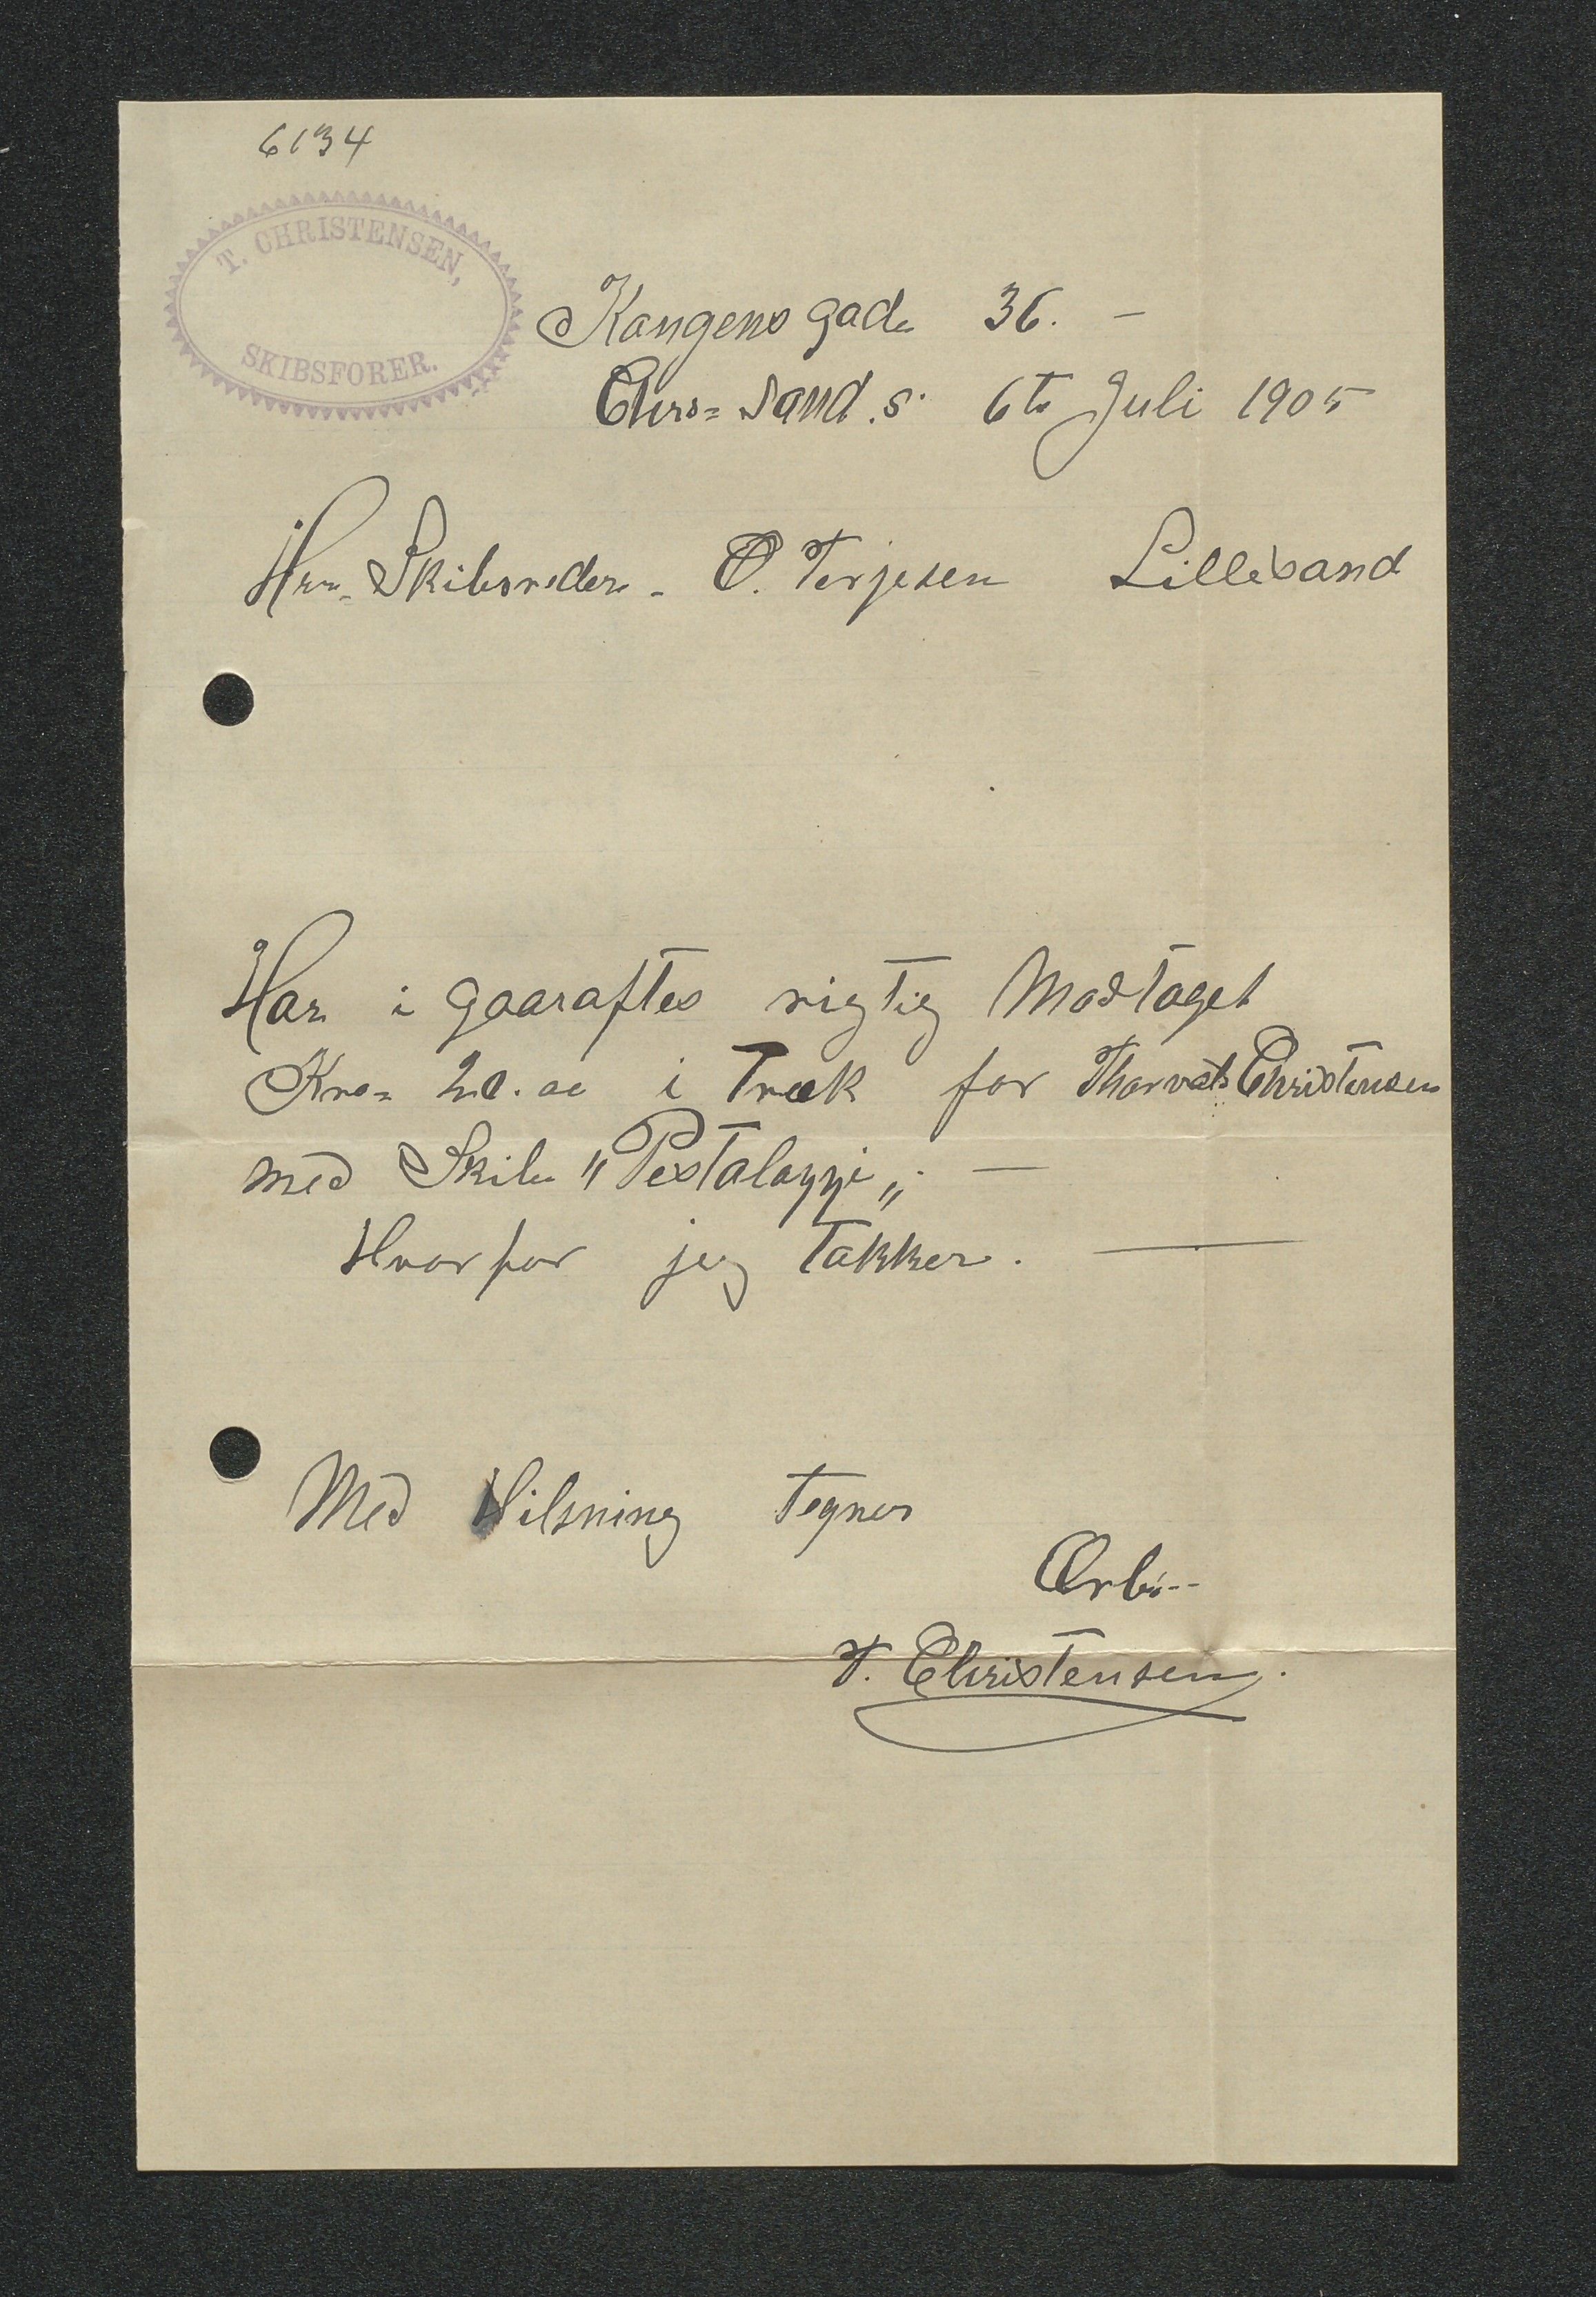 6134
T. CHRISTENSEN,
SKIBSFORER.
Kongens gade 36. -
Chrs= Sand. S. 6te Juli 1905
Hrr. Skibsreder. O. Terjesen Lillesand
Har i gaaraftes rigtig Modtaget
Kro= 20.00 i Træk for Thorvals Christensen
med Skib "Pestalozzi". —
Hvorfor jeg takker. —
Med Hilsning tegner
Ærb--
T. Christensen.